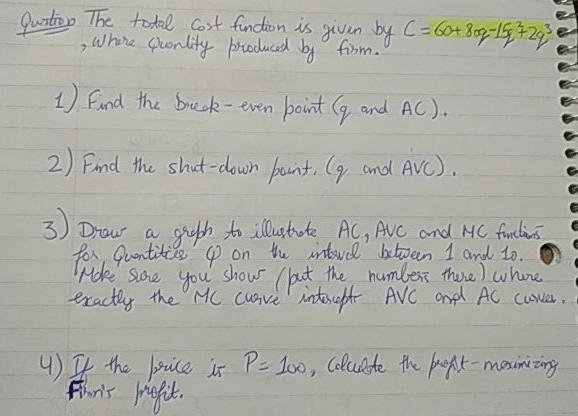 Question The total cost function is given by C = 60 + 80q - 15q² + 2q³
, where quantity produced by firm.
1) Find the break-even point (q and AC).
2) Find the shut-down point. (q and AVC).
3) Draw a graph to illustrate AC, AVC and MC functions
for Quantities Q on the interval between 1 and 10.
Make sure you show (put the numbers there) where
exactly the MC curve intercepts AVC and AC curves.
4) If the price is P = 100, calculate the profit-maximizing
Firm's profit.